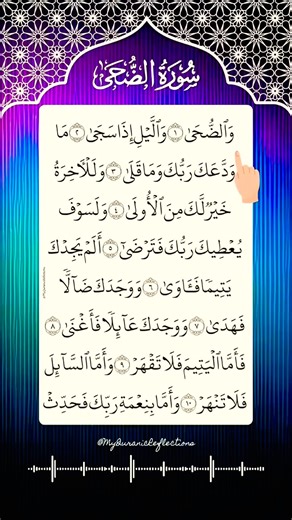 سُورَةُ الضُّحَىٰ
وَالضُّحَىٰ ١ وَالَّيْلِ إِذَا سَجَىٰ ٢ مَا
وَدَّعَكَ رَبُّكَ وَمَا قَلَىٰ ٣ وَلَلْاٰخِرَةُ
خَيْرٌ لَّكَ مِنَ الْأُولَىٰ ٤ وَلَسَوْفَ
يُعْطِيكَ رَبُّكَ فَتَرْضَىٰ ٥ أَلَمْ يَجِدْكَ
يَتِيمًا فَـَٔاوَىٰ ٦ وَوَجَدَكَ ضَآلًّا
فَهَدَىٰ ٧ وَوَجَدَكَ عَآئِلًا فَأَغْنَىٰ ٨
فَأَمَّا الْيَتِيمَ فَلَا تَقْهَرْ ٩ وَأَمَّا السَّآئِلَ
فَلَا تَنْهَرْ ١٠ وَأَمَّا بِنِعْمَةِ رَبِّكَ فَحَدِّثْ
@MyQuranicReflections